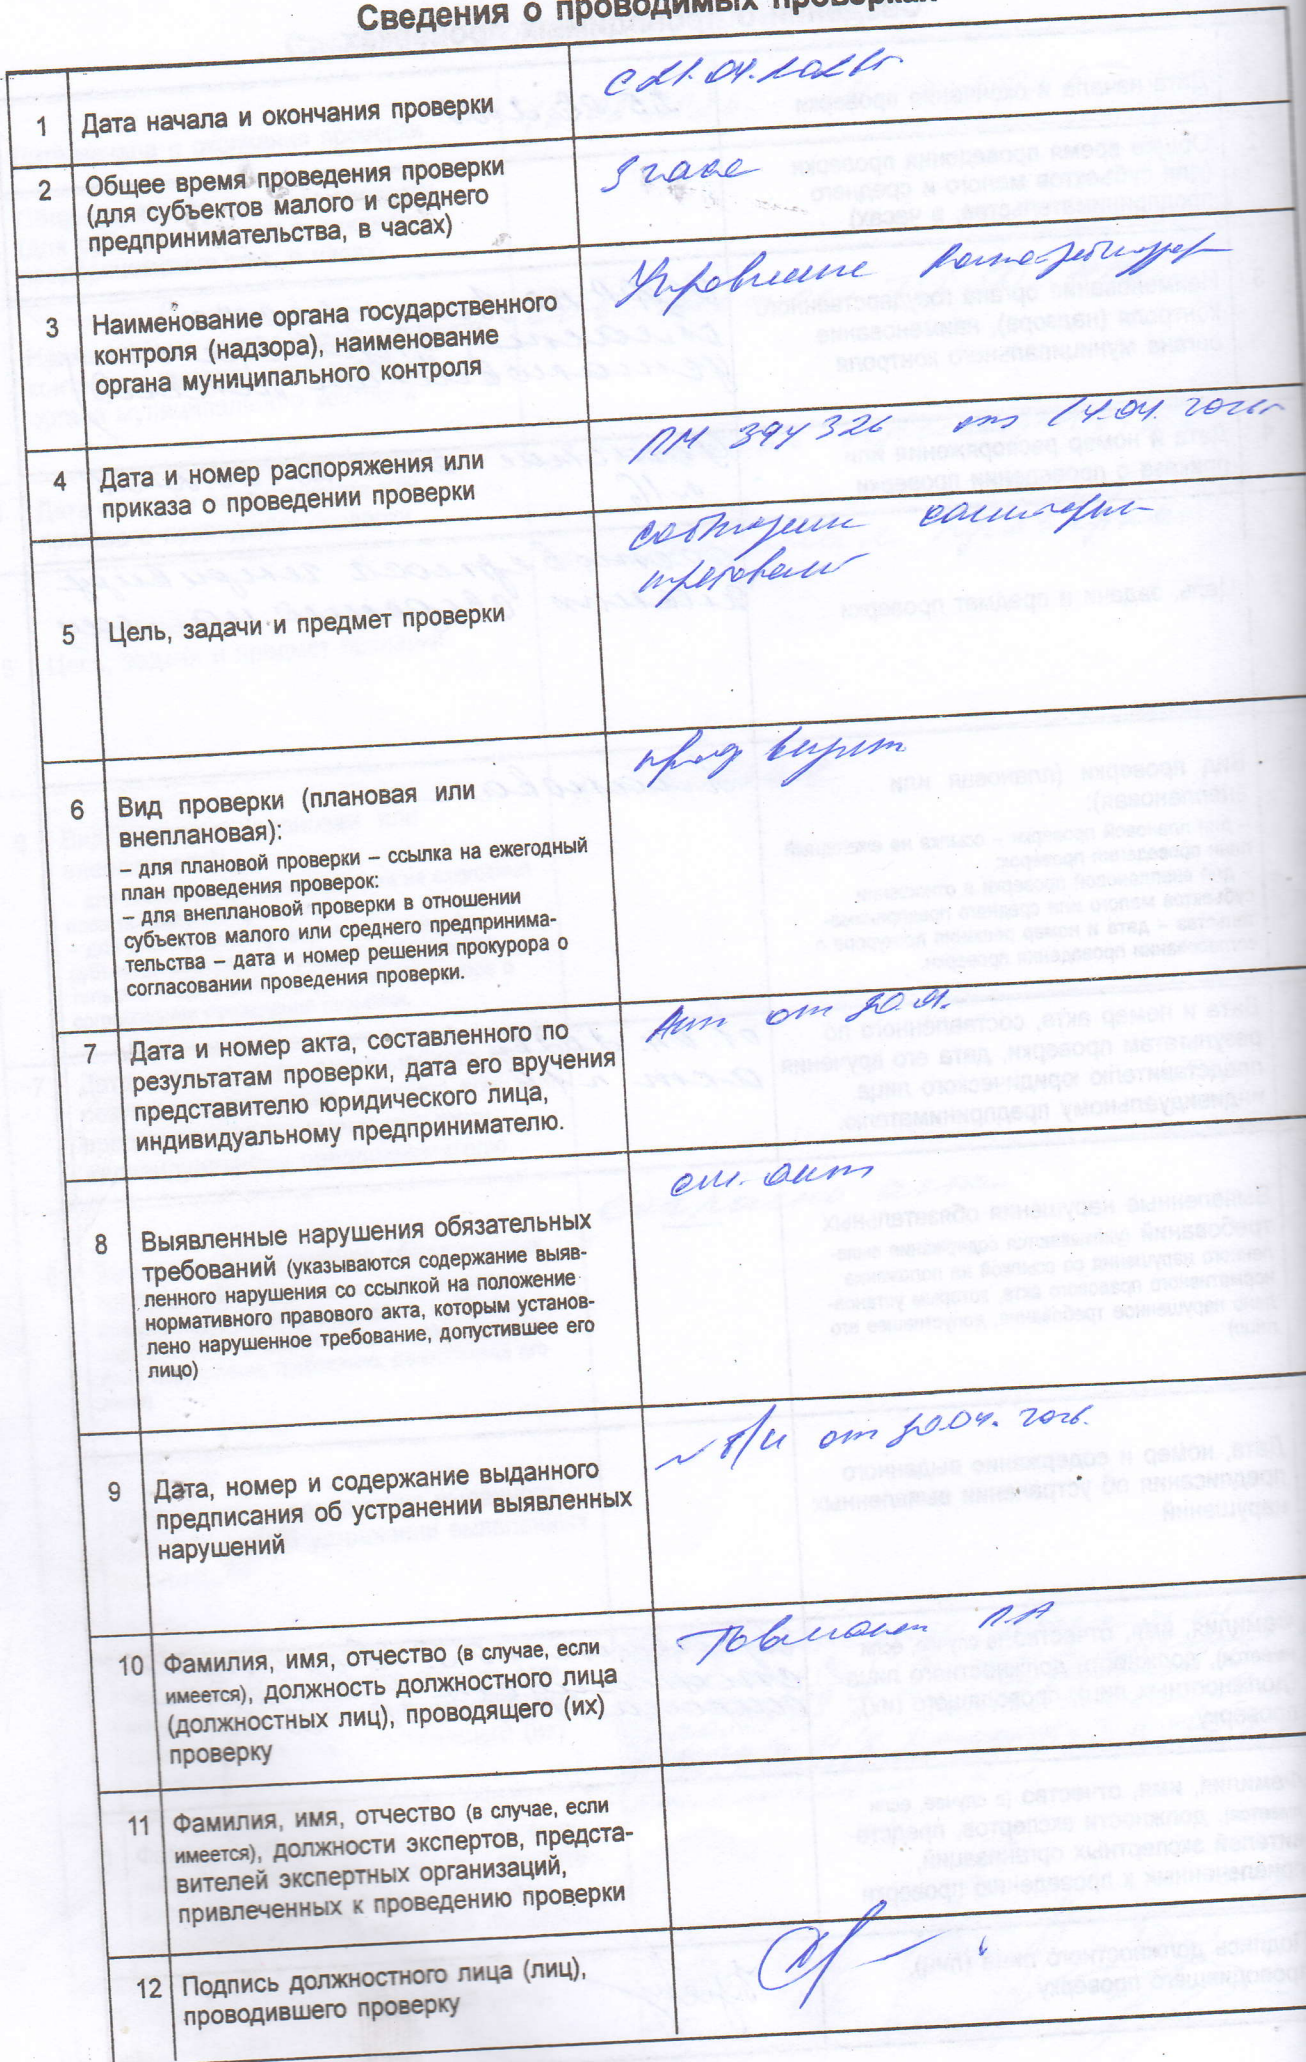 Сведения о проводимых проверках
1 Дата начала и окончания проверки
с 21.04.2026г
2 Общее время проведения проверки
(для субъектов малого и среднего
предпринимательства, в часах)
3 часа
3 Наименование органа государственного
контроля (надзора), наименование
органа муниципального контроля
Управление Роспотребнадзор
4 Дата и номер распоряжения или
приказа о проведении проверки
394326 от 14.04.
5 Цель, задачи и предмет проверки
соблюдени санитарн
требований
6 Вид проверки (плановая или
внеплановая):
– для плановой проверки – ссылка на ежегодный
план проведения проверок:
– для внеплановой проверки в отношении
субъектов малого или среднего предпринима-
тельства – дата и номер решения прокурора о
согласовании проведения проверки.
проф визит
7 Дата и номер акта, составленного по
результатам проверки, дата его вручения
представителю юридического лица,
индивидуальному предпринимателю.
Акт от
8 Выявленные нарушения обязательных
требований (указываются содержание выяв-
ленного нарушения со ссылкой на положение
нормативного правового акта, которым установ-
лено нарушенное требование, допустившее его
лицо)
см. акт
9 Дата, номер и содержание выданного
предписания об устранении выявленных
нарушений
от 30.04.
10 Фамилия, имя, отчество (в случае, если
имеется), должность должностного лица
(должностных лиц), проводящего (их)
проверку
11 Фамилия, имя, отчество (в случае, если
имеется), должности экспертов, предста-
вителей экспертных организаций,
привлеченных к проведению проверки
12 Подпись должностного лица (лиц),
проводившего проверку